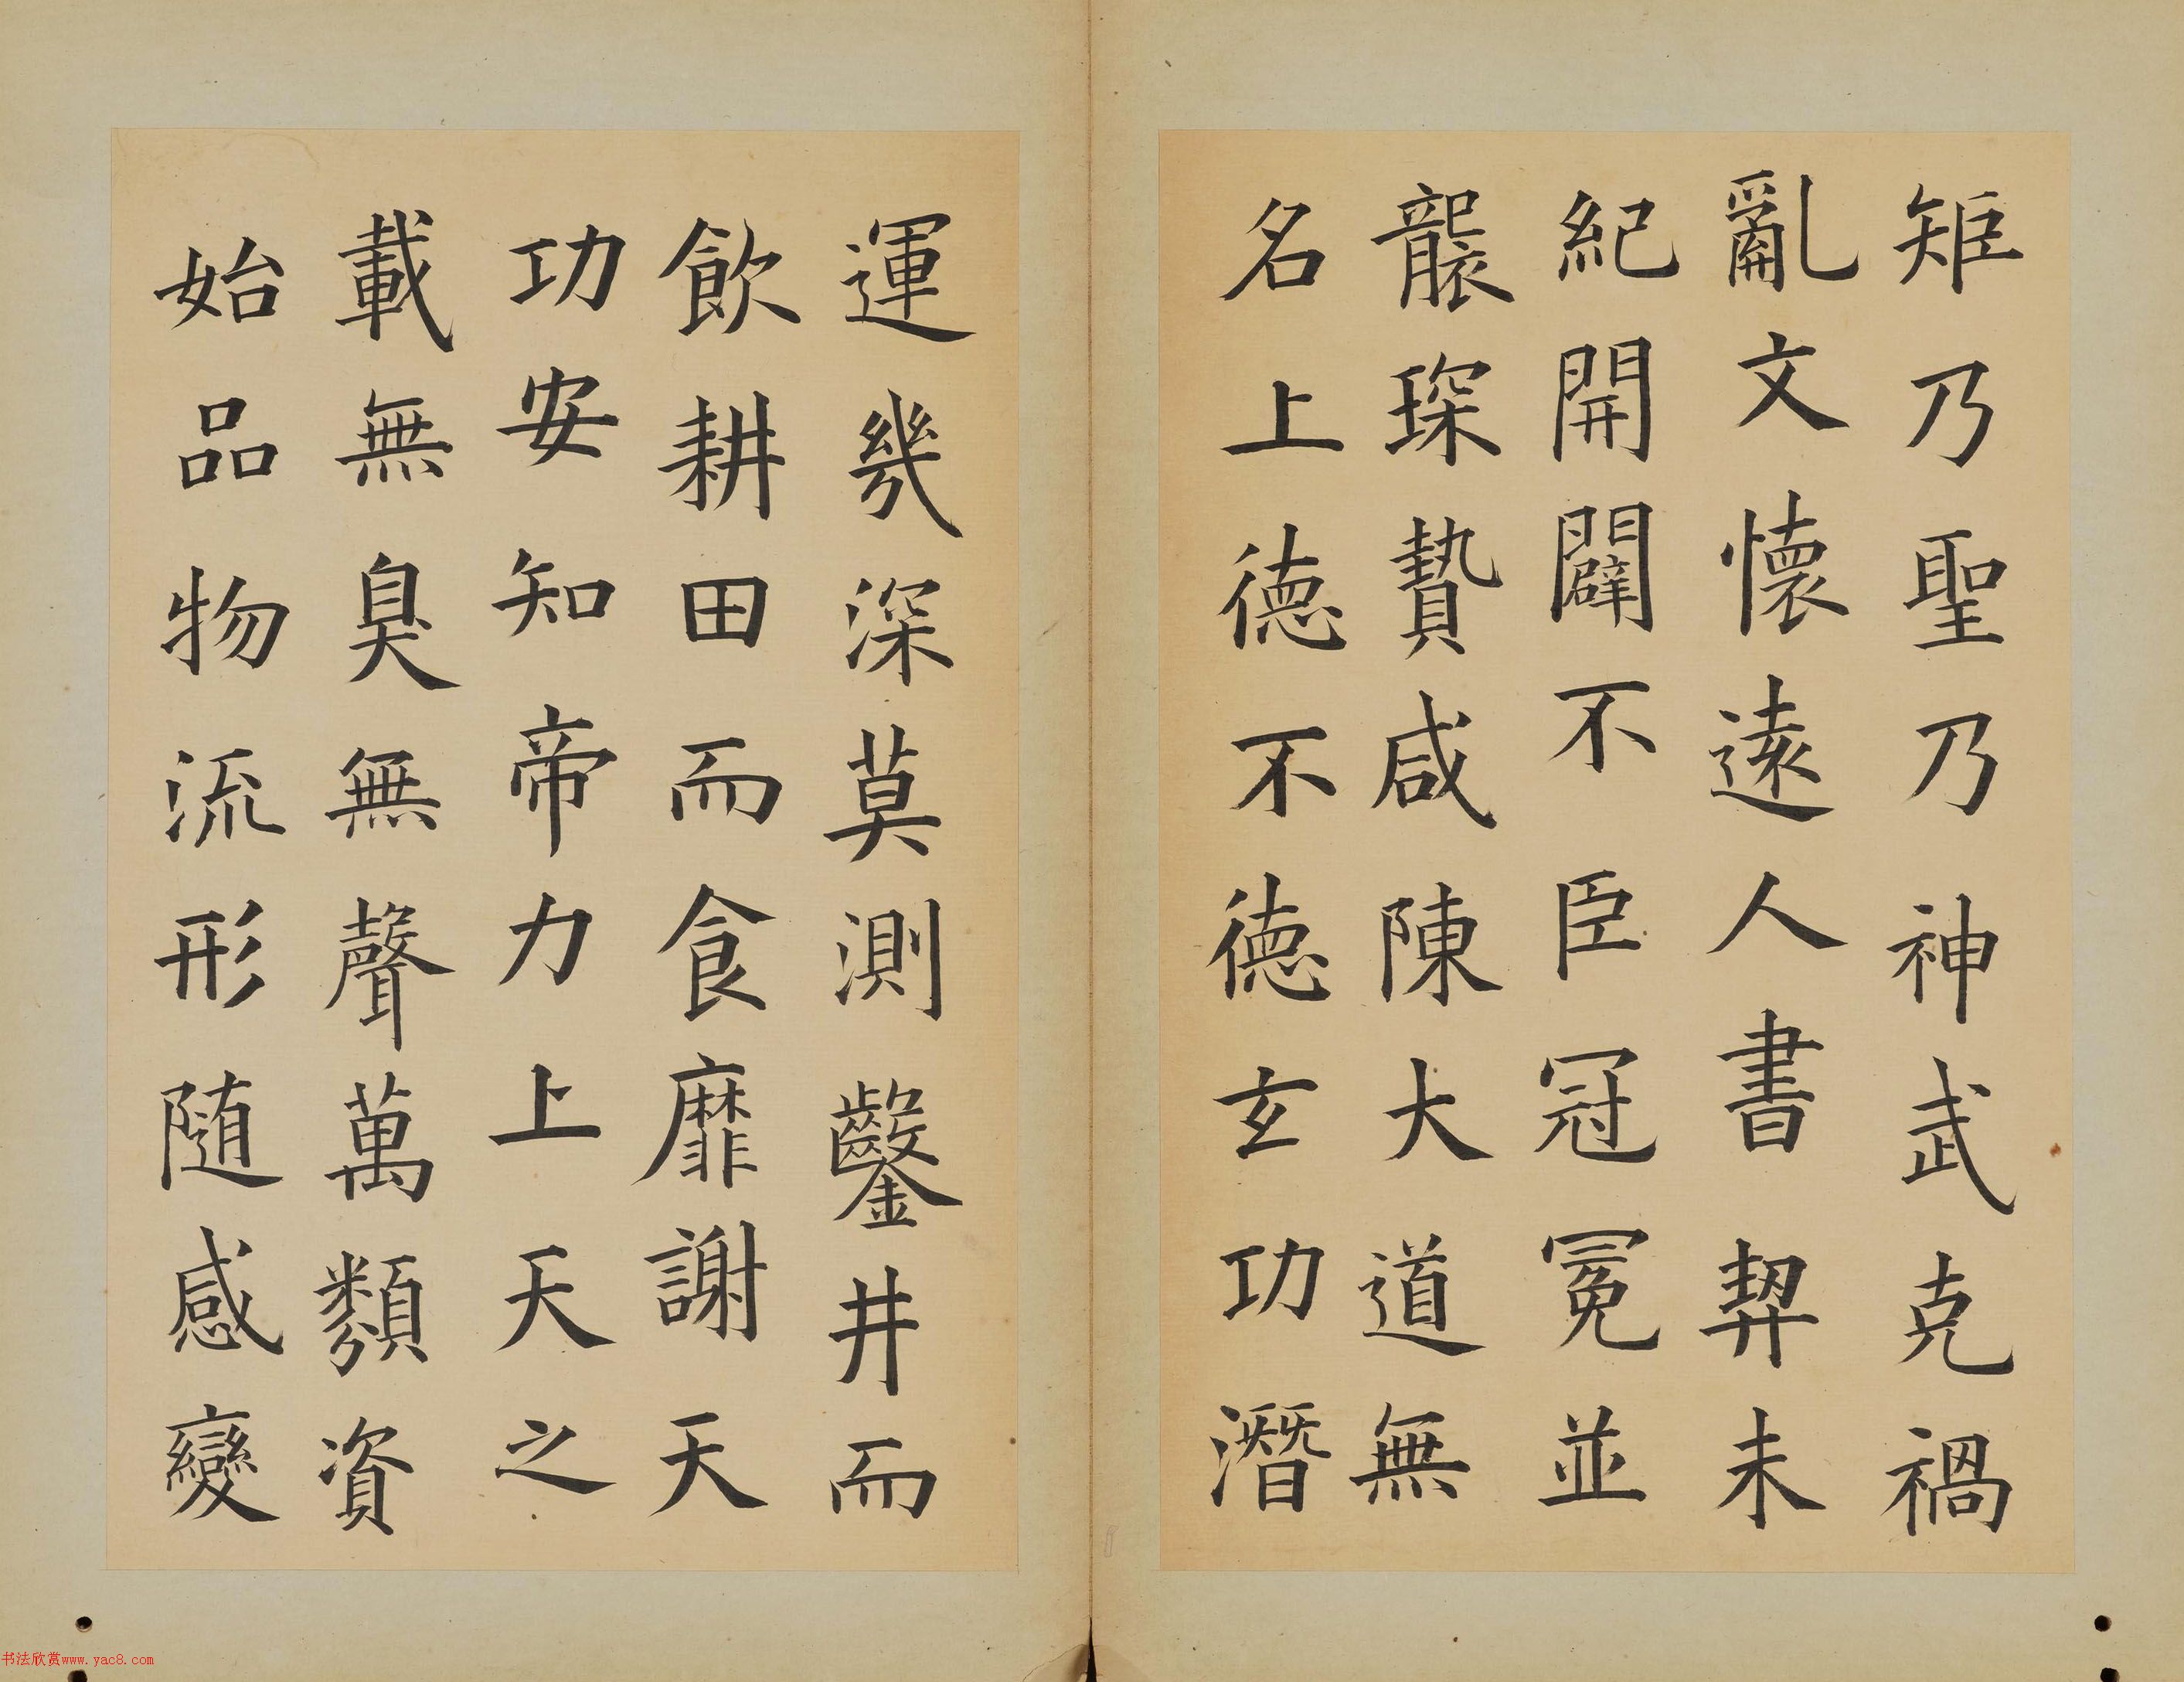 矩乃聖乃神武克禍
亂文懷遠人書契未
紀開闢不臣冠冕並
襲琛贄咸陳大道無
名上德不德玄功潛
運幾深莫測鑿井而
飲耕田而食靡謝天
功安知帝力上天之
載無臭無聲萬類資
始品物流形随感變
书法欣赏www.yac8.com